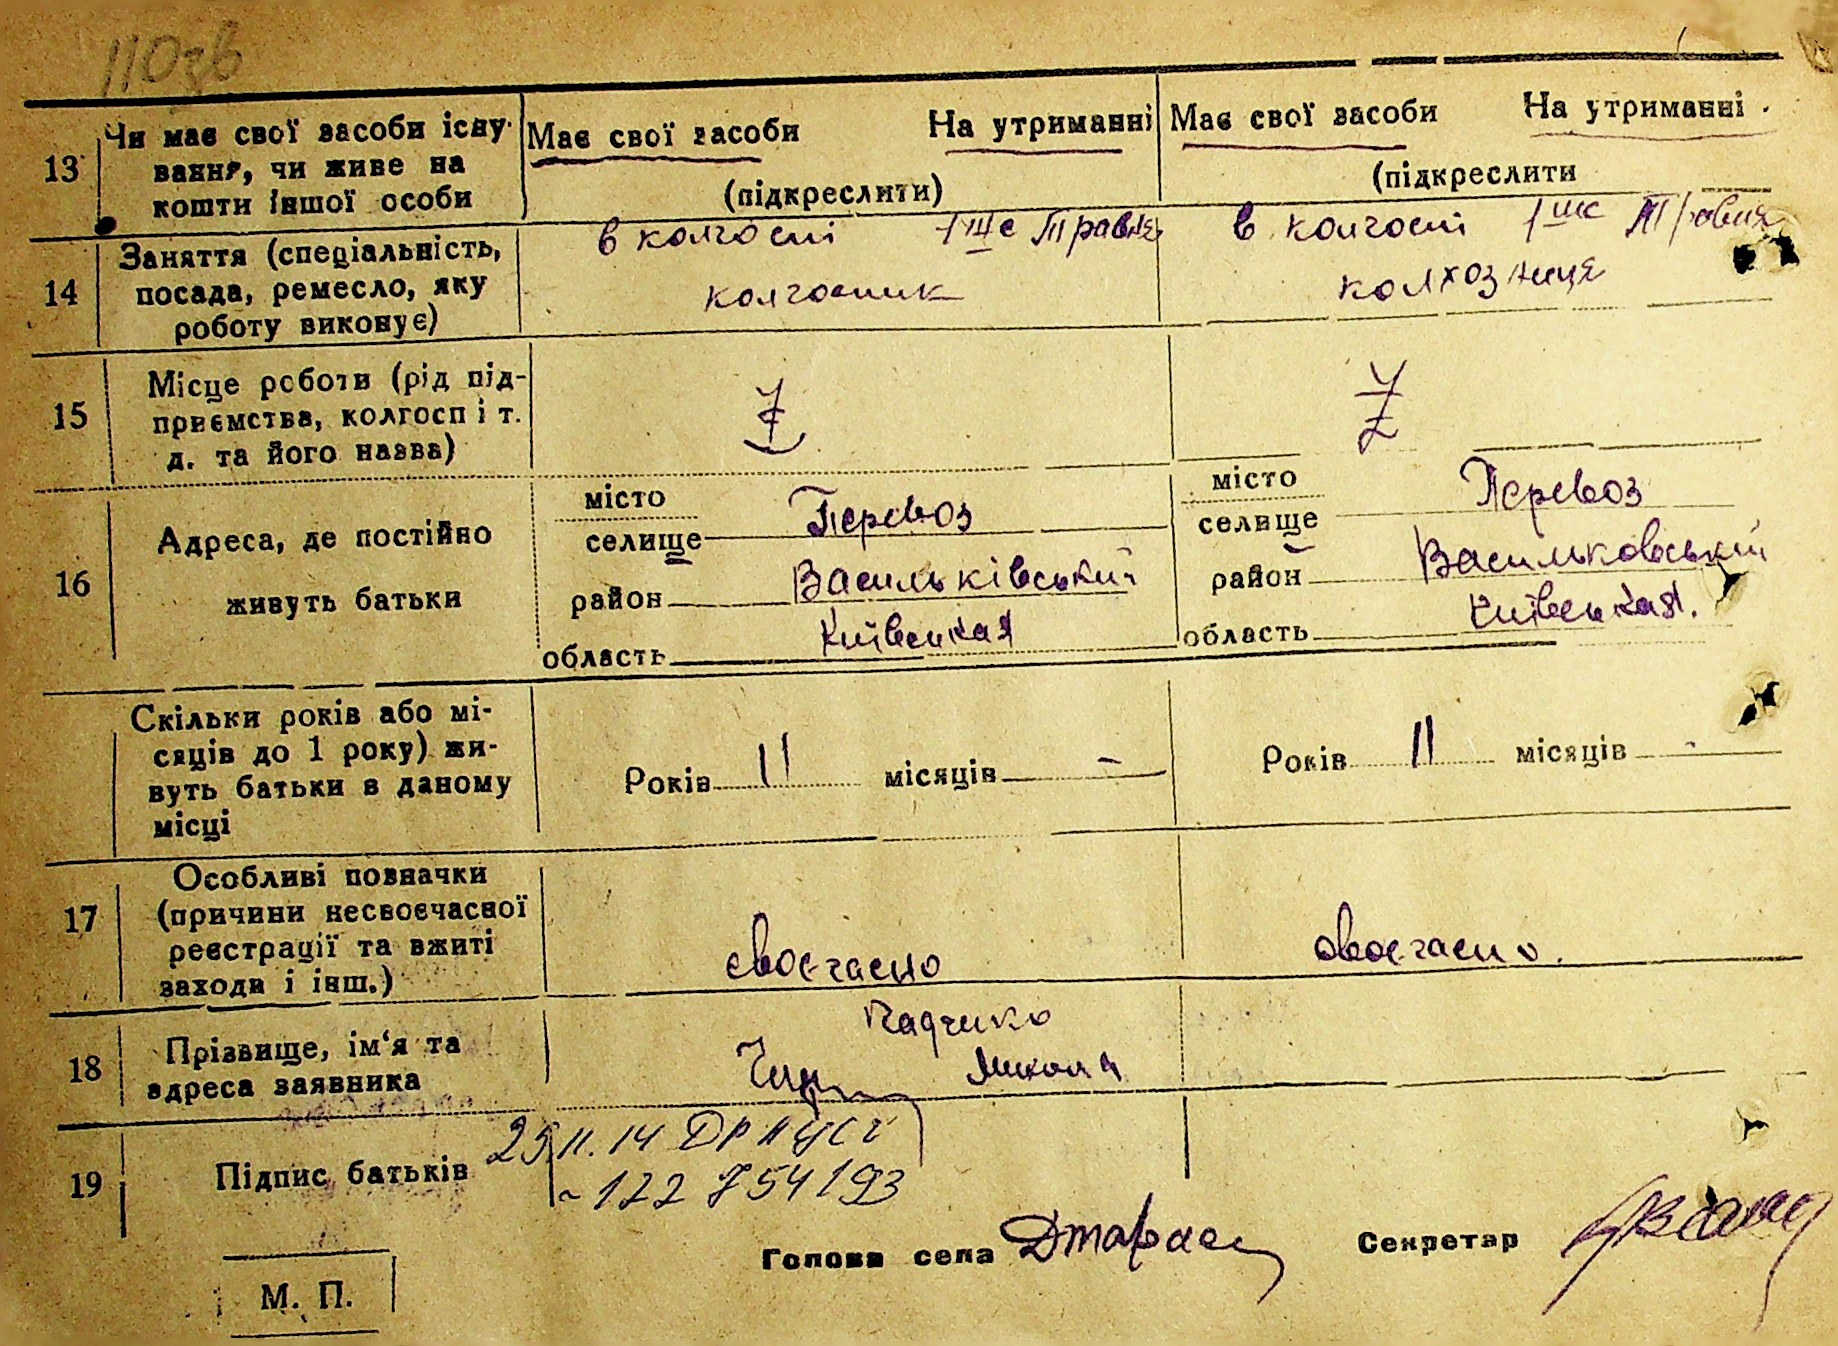 110зв
13 Чи має свої засоби існу-
вання, чи живе на
кошти іншої особи
Має свої засоби На утриманні
(підкреслити)
Має свої засоби На утриманні
(підкреслити
14 Заняття (спеціальність,
посада, ремесло, яку
роботу виконує)
в колгоспі 1ше Травня
колгоспник
в колгоспі 1ше Травня
колхозниця
15 Місце роботи (рід під-
приємства, колгосп і т.
д. та його назва)
16 Адреса, де постійно
живуть батьки
місто
селище Перевоз
район Васильківський
область Київськая
місто
селище Перевоз
район Васильковський
область Київськая.
Скільки років або мі-
сяців до 1 року) жи-
вуть батьки в даному
місці
Років 11 місяців -
Років 11 місяців -
17 Особливі позначки
(причини несвоєчасної
реєстрації та вжиті
заходи і інш.)
своєчасно
своєчасно.
18 Прізвище, ім'я та
адреса заявника
Микола
19 Підпис батьків
25.11.14
122 754193
Голова села
Секретар
М. П.